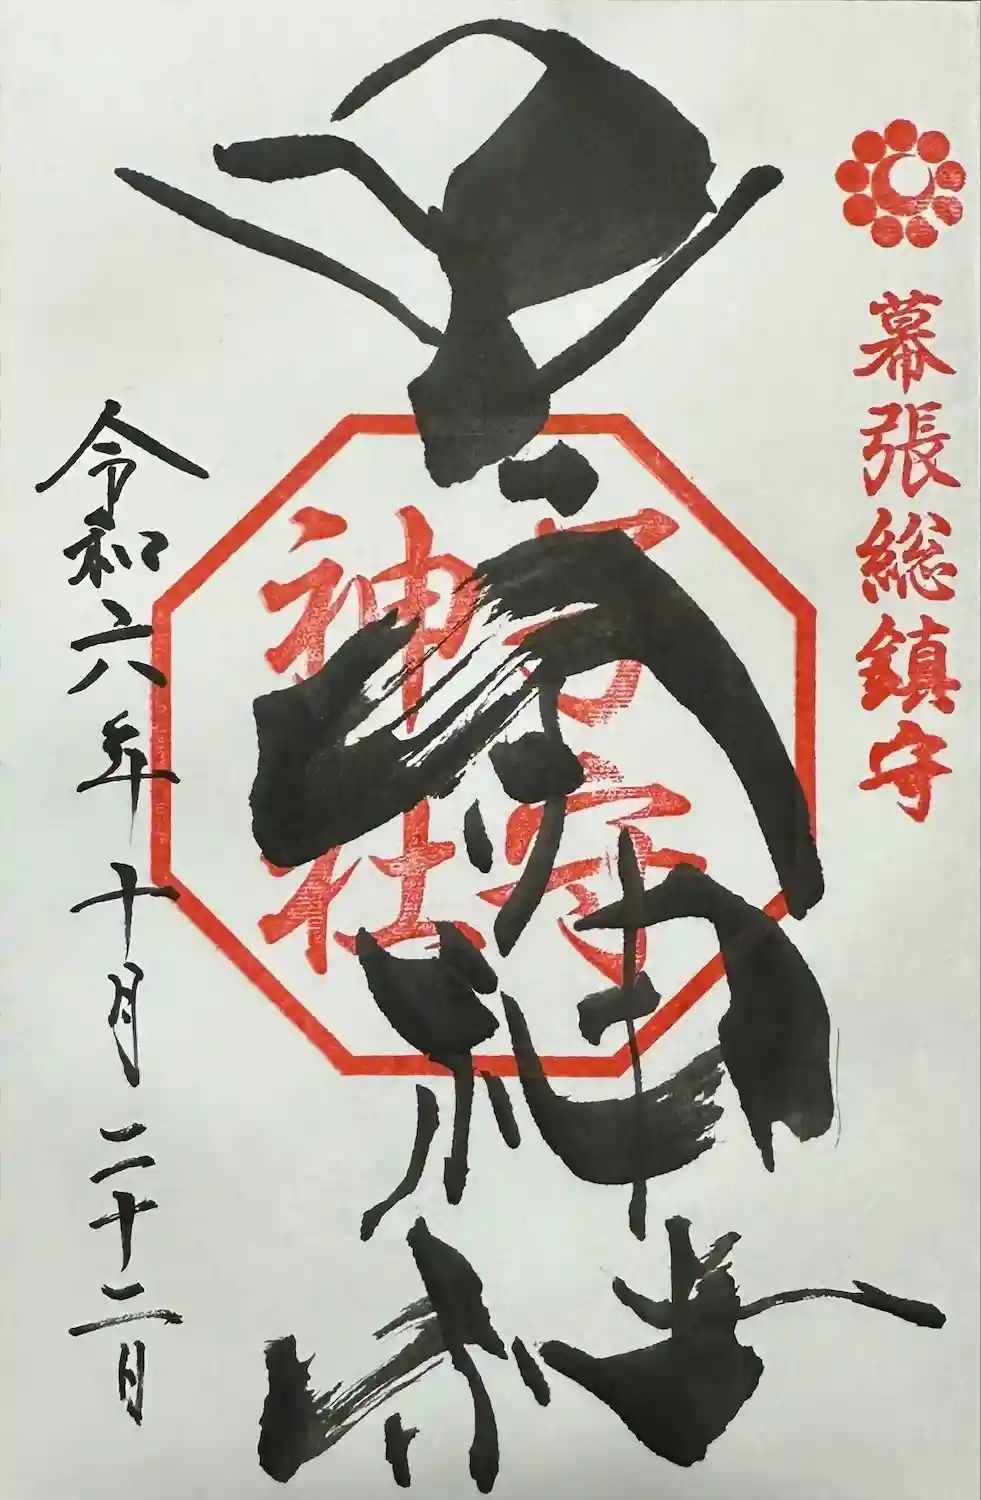 幕張総鎮守
子守
神社
子守神社
令和六年十月二十二日